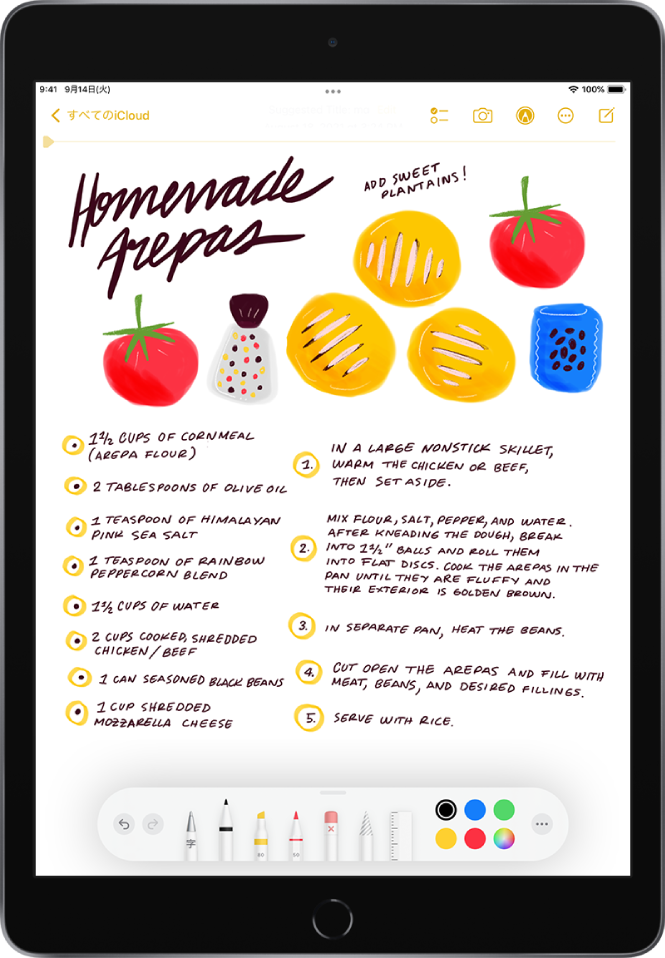 9:41 9月14日(火)
100%
すべてのiCloud
Homemade
Arepas
ADD SWEET
PLANTAINS!
1½ CUPS OF CORNMEAL
(AREPA FLOUR)
2 TABLESPOONS OF OLIVE OIL
1 TEASPOON OF HIMALAYAN
PINK SEA SALT
1 TEASPOON OF RAINBOW
PEPPERCORN BLEND
1½ CUPS OF WATER
2 CUPS COOKED, SHREDDED
CHICKEN/BEEF
1 CAN SEASONED BLACK BEANS
1 CUP SHREDDED
MOZZARELLA CHEESE
1. IN A LARGE NONSTICK SKILLET,
WARM THE CHICKEN OR BEEF,
THEN SET ASIDE.
2. MIX FLOUR, SALT, PEPPER, AND WATER.
AFTER KNEADING THE DOUGH, BREAK
INTO 1½" BALLS AND ROLL THEM
INTO FLAT DISCS. COOK THE AREPAS IN THE
PAN UNTIL THEY ARE FLUFFY AND
THEIR EXTERIOR IS GOLDEN BROWN.
3. IN SEPARATE PAN, HEAT THE BEANS.
4. CUT OPEN THE AREPAS AND FILL WITH
MEAT, BEANS, AND DESIRED FILLINGS.
5. SERVE WITH RICE.
80
50